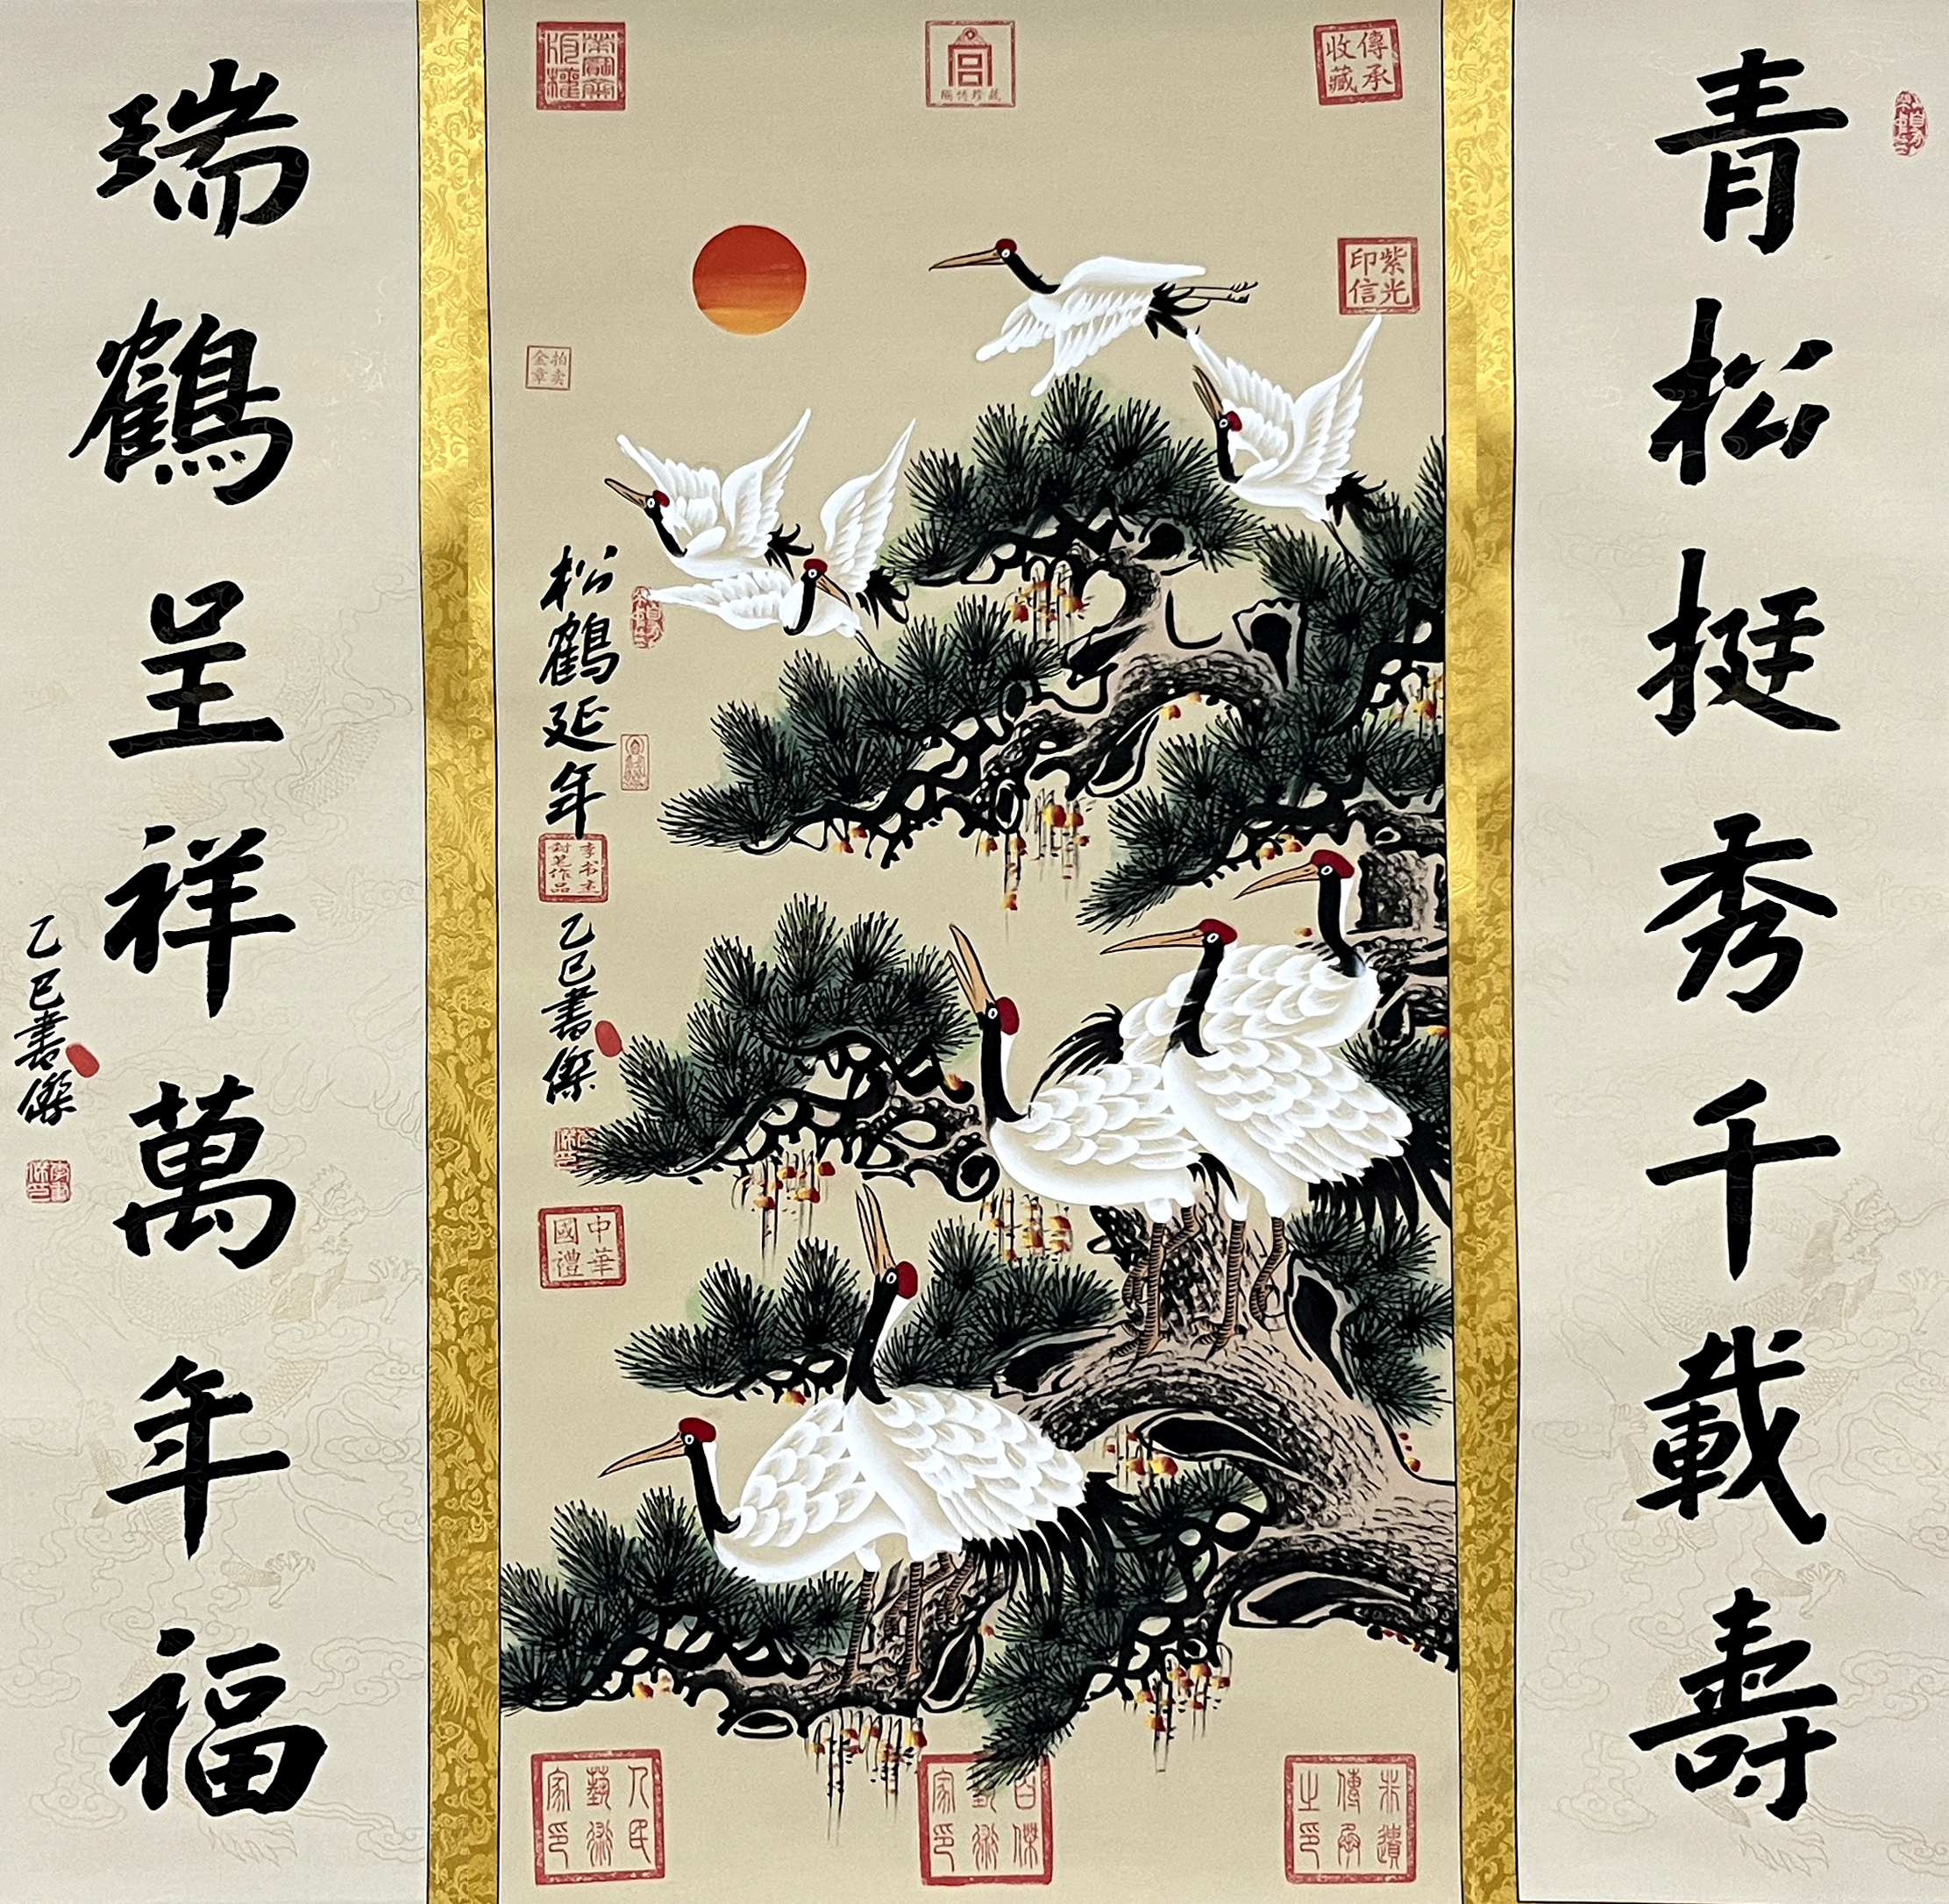 青松挺秀千載壽
瑞鶴呈祥萬年福
乙巳書傑
松鶴延年
乙巳書傑
傳承收藏
紫光印信
拍卖金章
中華國禮
人民藝術家印